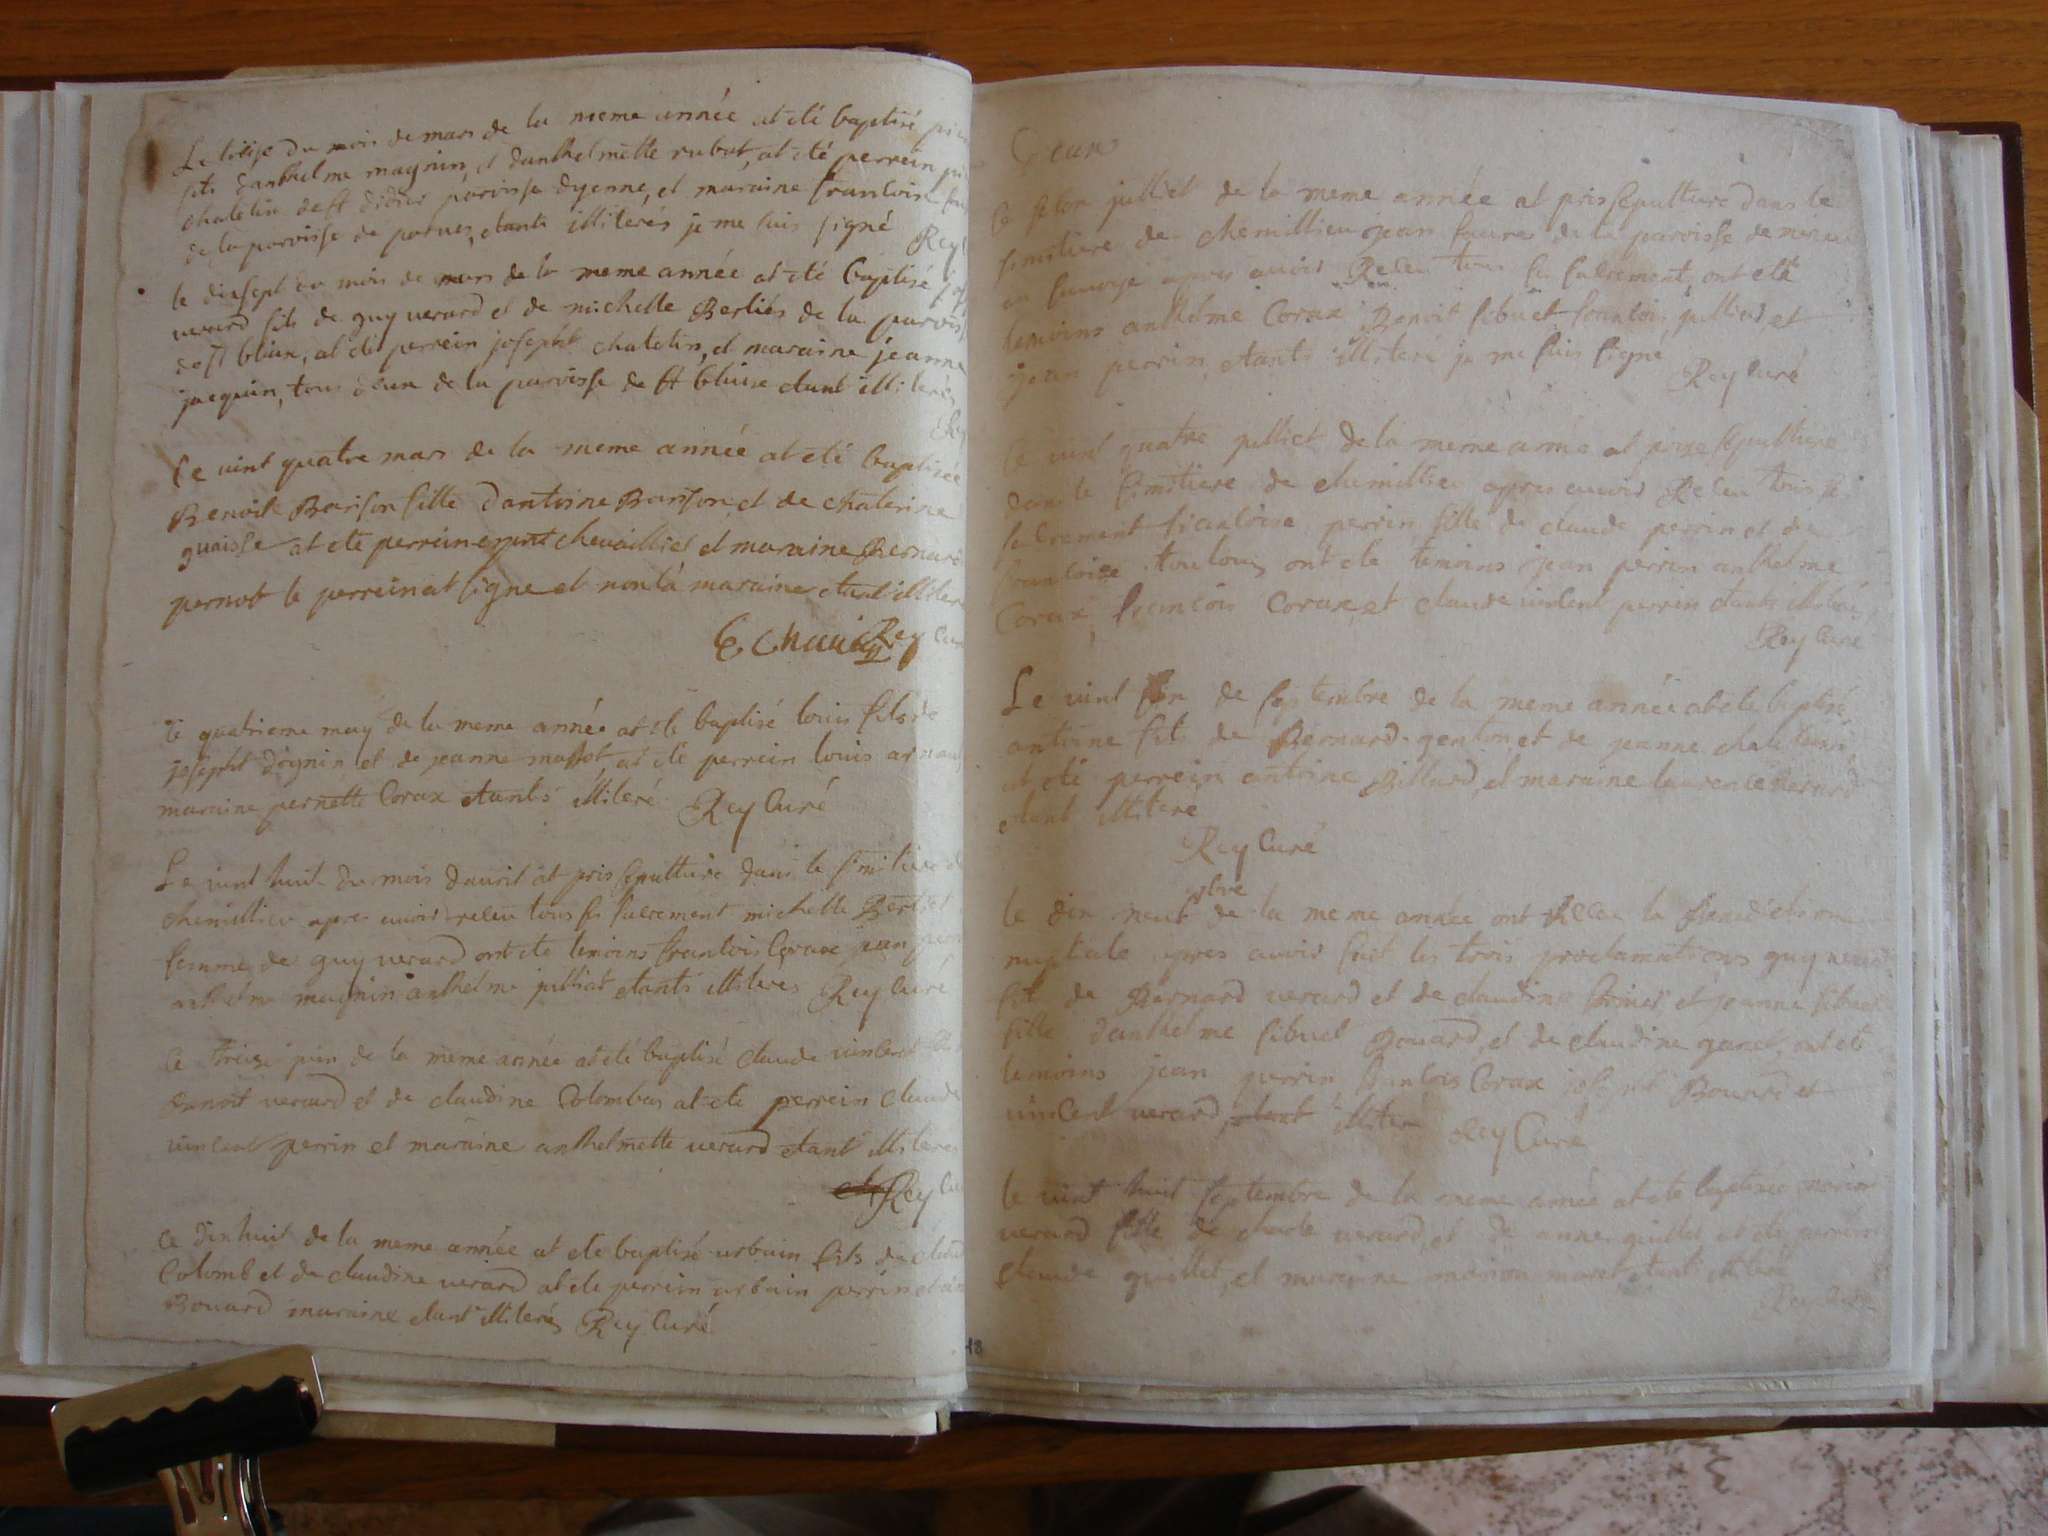 du mois de mars de la meme année at eté baptisé
fils danthelme magnin, et danthelmette rubot, at eté perrein
chatelin de st didier paroisse dyenne, et maraine francoise
de la paroisse de etants illiterés je me suis signé Rey
le dixsept du mois de mars de la meme année at eté baptisé
verard fils de guy verard et de michelle Berliet de la paroisse
de st blaise, at eté perrein josepht chatelin, et maraine jeanne
jacquin, tous deux de la paroisse de st blaise etant illiterés
Rey
Le vint quatre mars de la meme année at eté baptisée
Benoite Banson fille dantoine Banson, et de chaterine
guaisse at eté perrein chevaillier et maraine Bernard
pernot le perrein at signe et non la maraine etant illiteré
Rey Curé
le quatrieme may de la meme année at eté baptisé louis fils de
josepht dognin et de jeanne massot, at eté perrein louis arnaud
maraine pernette Corax etants illiteré Rey Curé
Le vint huit du mois davril at pris sepulture dans le simitiere de
chemillieu apres avoir receu tous ses sacrement michelle Berliet
femme de guy verard ont ete temoins francois Corax jean perrin
anthelme magnin anthelme julliat etants illiteres Rey Curé
Le treize juin de la meme année at eté baptisé claude vincent
Benoit verard et de claudine Colombas at eté perrein claude
vincent perrin et maraine anthelmette verard etant illiteres
Rey Curé
Le dixhuit de la meme année at eté baptisé urbain fils de claude
Colomb et de claudine verard at ete perrein urbain perrin et
Bouard maraine etant illiterés Rey Curé
Le julliet de la meme année at pris sepulture dans le
simitiere de chemillieu jean faure de la paroisse de
en savoye apres avoir Receu tous ses sacrement, ont eté
temoins anthelme Corax Benoit sibuet francois julliard et
jean perrin etants illiteré je me suis signé
Rey Curé
Le vint quatre julliet de la meme année at prise sepulture
dans le simitiere de chemillieu apres avoir Receu tous ses
sacrement francoise perrin fille de claude perrin et de
francoise ont ete temoins jean perrin anthelme
Corax, francois Corax, et claude vincent perrin etants illiteré
Rey Curé
Le vint de septembre de la meme année at ete baptisé
antoine fils de Bernard genton, et de jeanne
at eté perrein antoine Billard, et maraine laurence verard
etant illiteré
Rey Curé
le dix neuf 9bre de la meme année ont Receu la Benediction
nuptiale apres avoir fait les trois proclamations guy verard
fils de Bernard verard et de claudine et jeanne sibuet
fille danthelme sibuet Bouard, et de claudine ont ete
temoins jean perrin francois Corax josepht Bouard et
vincent verard, etant illiteré Rey Curé
le vint huit septembre de la meme année at ete baptisée marie
verard fille de charle verard, et de anne guillet at ete perrein
claude guillet, et maraine marion etant illiteré
Rey Curé
18